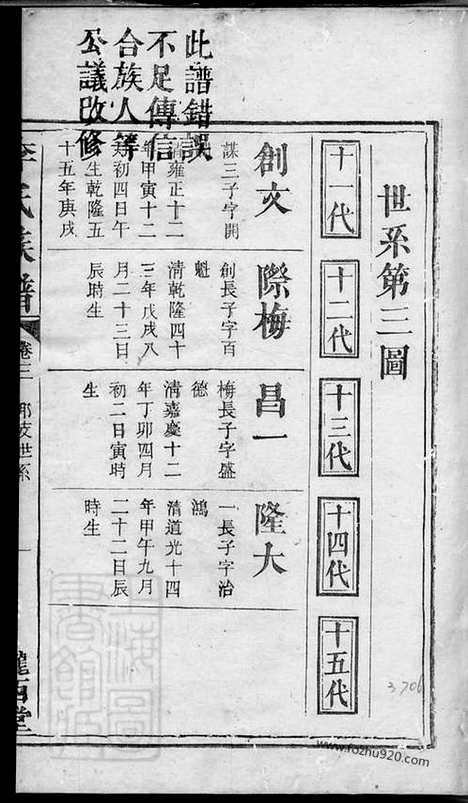 世系第三圖
十一代
十二代
十三代
十四代
十五代
創文
謀三子字開
清雍正十二
年甲寅十二
月初四日午
生乾隆五
十五年庚戌
際梅
創長子字百
魁
清乾隆四十
三年戊戌八
月二十三日
辰時生
昌一
梅長子字盛
德
清嘉慶十二
年丁卯四月
初二日寅時
生
隆大
一長子字治
鴻
清道光十四
年甲午九月
二十二日辰
時生
此譜錯誤
不足傳信
合族人等
公議改修
李氏族譜
卷三
支世系
一
隴西堂
上海圖
書館藏
3706
www.fozhu920.com